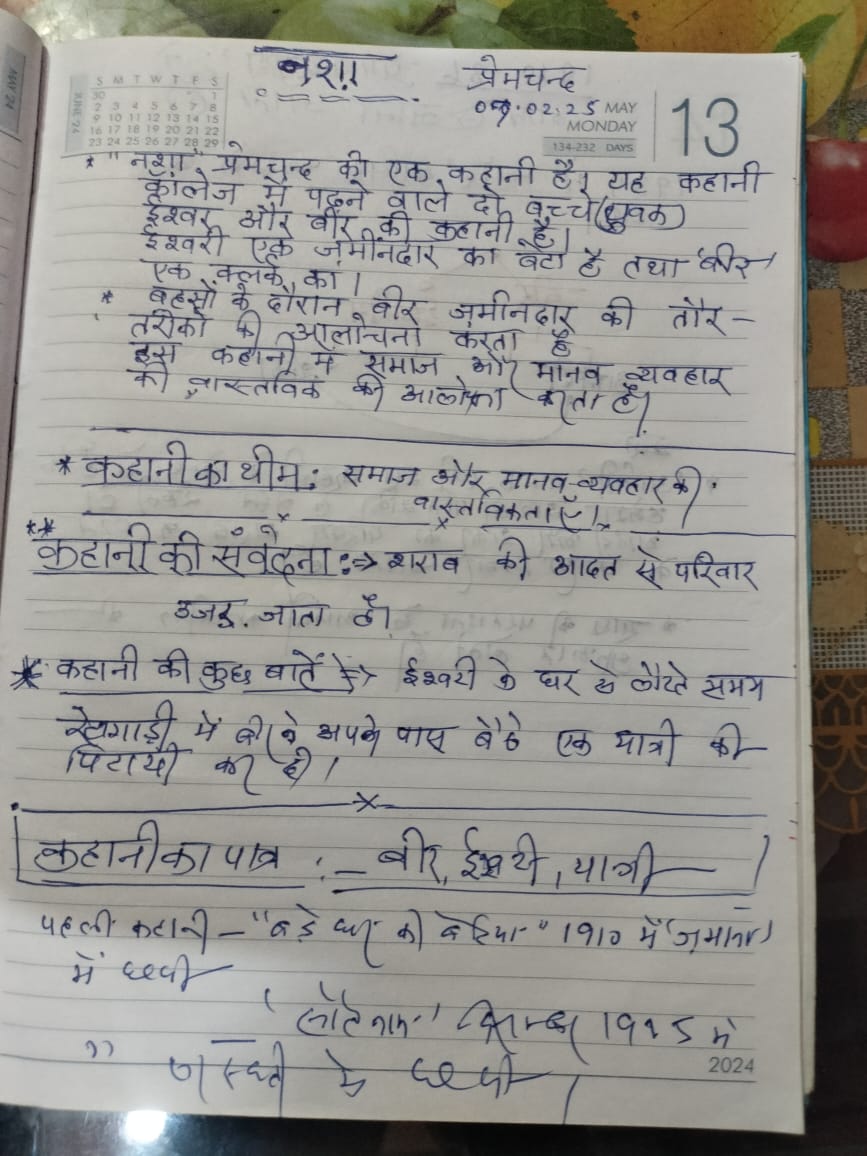 नशा
प्रेमचन्द
07.02.25 MAY
MONDAY
13
134-232 DAYS
MAY'24
JUNE'24
S M T W T F S
30 1
2 3 4 5 6 7 8
9 10 11 12 13 14 15
16 17 18 19 20 21 22
23 24 25 26 27 28 29
* "नशा" प्रेमचन्द की एक कहानी है। यह कहानी
कॉलेज में पढ़ने वाले दो बच्चे (युवक)
ईश्वर और बीर की कहानी है।
ईश्वरी एक ज़मींनदार का बेटा है तथा 'बीर'
एक क्लर्क का।
* बहसों के दौरान बीर ज़मीनदार की तौर-
तरीकों की आलोचना करता है
इस कहानी में समाज और मानव व्यवहार
की वास्तविक की आलोचना करता है।
* कहानी का थीम: समाज और मानव-व्यवहार की
वास्तविकताएँ।
** कहानी की संवेदना :⇒ शराब की आदत से परिवार
उजड़ जाता है।
* कहानी की कुछ बातें ⇒ ईश्वरी के घर से लौटते समय
रेलगाड़ी में बीर ने अपने पास बैठे एक यात्री की
पिटायी कर दी।
कहानी का पात्र :- बीर, ईश्वरी, यात्री
पहली कहानी - "बड़े घर की बेटिया" 1910 में 'ज़माना'
में छपी
" 'सौत' नाम दिसम्बर 1915 में
सरस्वती में छपी।
2024